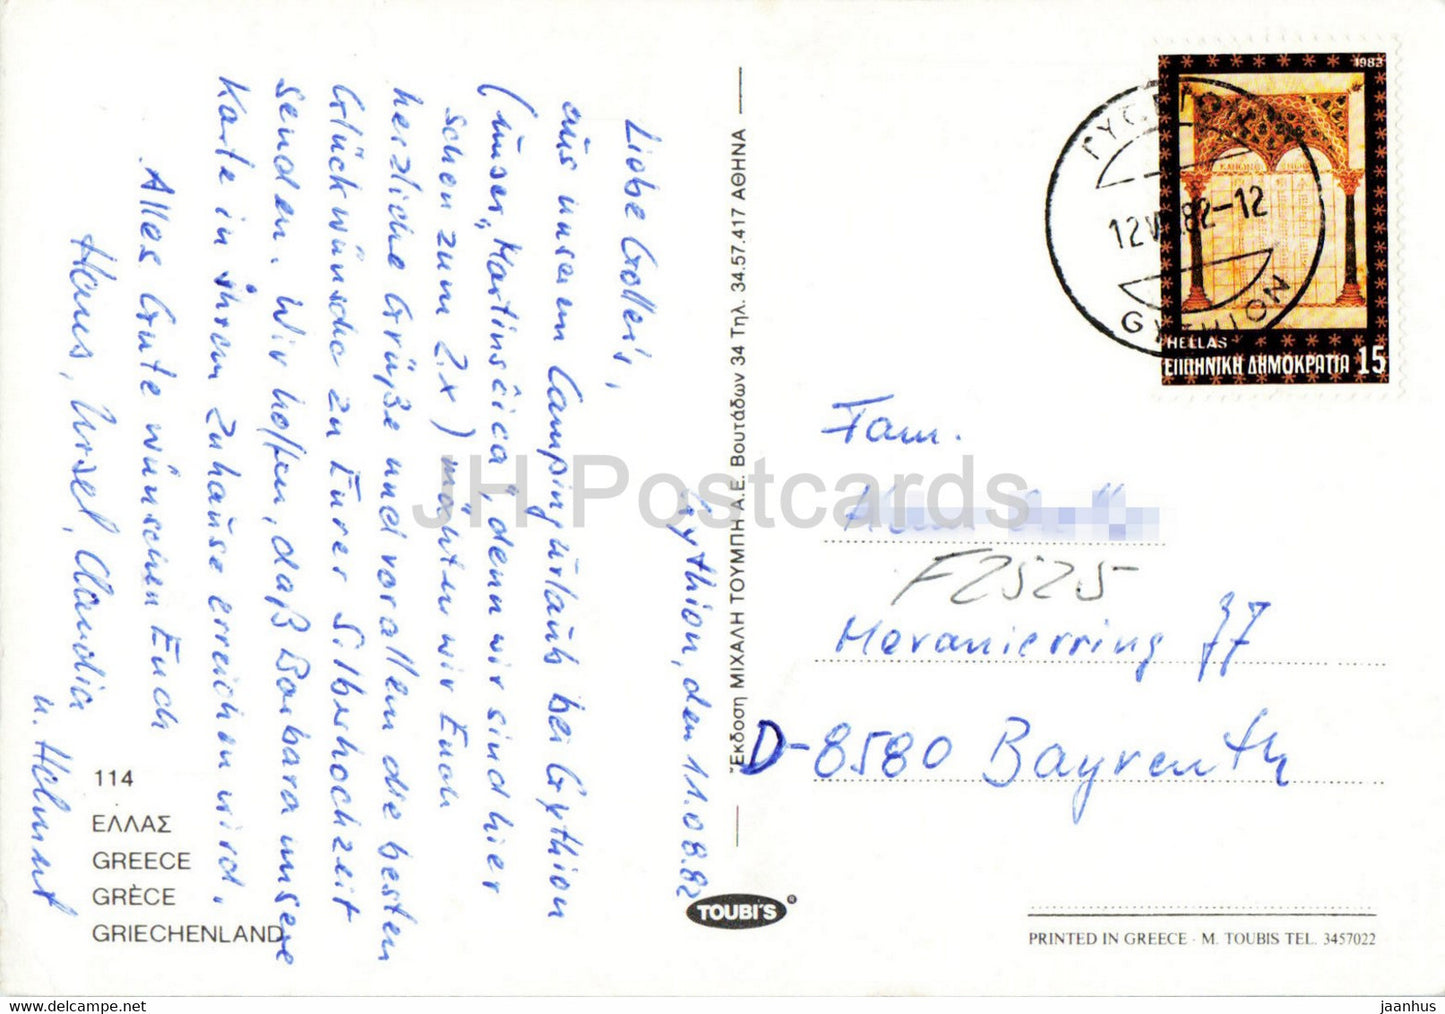 Gythion, den 11.08.82
Liebe Gollers,
aus unserm Campingurlaub bei Gythion
(unser „Martinsčica", denn wir sind hier
schon zum 2.x) möchten wir Euch
herzliche Grüße und vor allem die besten
Glückwünsche zu Eurer Silberhochzeit
senden. Wir hoffen, daß Barbara unsere
Karte in Ihrem Zuhause erreichen wird.
Alles Gute wünschen Euch
Hans, Ursel, Claudia
u. Helmut
114
ΕΛΛΑΣ
GREECE
GRÈCE
GRIECHENLAND
Ἔκδοση ΜΙΧΑΛΗ ΤΟΥΜΠΗ Α.Ε. Βουτάδων 34 Τηλ. 34.57.417 ΑΘΗΝΑ
TOUBI'S ®
1982
HELLAS
ΕΛΛΗΝΙΚΗ ΔΗΜΟΚΡΑΤΙΑ 15
82-12
GYTHION
Fam.
F2525
Meranierring 77
D-8580 Bayreuth
PRINTED IN GREECE · M. TOUBIS TEL. 3457022
JH Postcards
www.delcampe.net
jaanhus